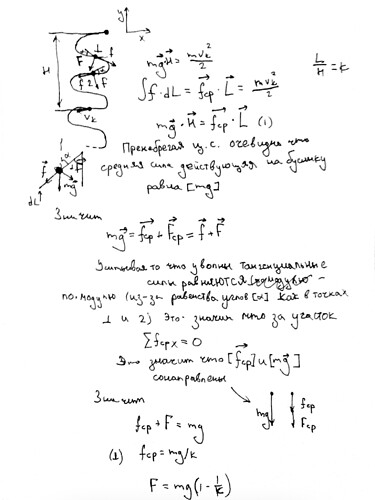 y
x
H
1
f
F
f 2 F
v_k
mg⃗·H⃗ = mv_k²/2
L/H = k
∫f⃗·dL⃗ = f⃗ср·L⃗ = mv_k²/2
mg⃗·H⃗ = f⃗ср·L⃗ (1)
Пренебрегая ц.с. очевидно что
средняя сила действующая на бусинку
равна [mg]
f⃗ α F⃗
mg⃗
dL⃗
Значит
mg⃗ = f⃗ср + F⃗ср = f⃗ + F⃗
Учитывая то что у волны тангенциальные
силы равняются
по модулю (из-за равенства углов [α] как в точках
1 и 2) Это значит что за участок
Σfсрх = 0
Это значит что [f⃗ср] и [mg⃗]
сонаправлены
mg fср
Fср
Значит
fср + F = mg
(1) fср = mg/k
F = mg(1 - 1/k)